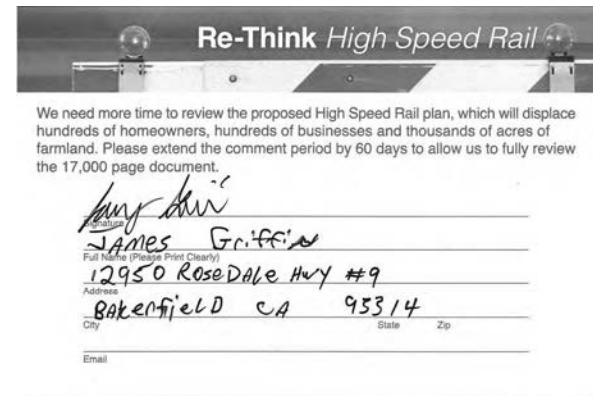 Re-Think High Speed Rail
We need more time to review the proposed High Speed Rail plan, which will displace
hundreds of homeowners, hundreds of businesses and thousands of acres of
farmland. Please extend the comment period by 60 days to allow us to fully review
the 17,000 page document.
Signature
JAMES Griffin
Full Name (Please Print Clearly)
12950 RoseDAle Hwy #9
Address
BAkerfielD CA 93314
City State Zip
Email